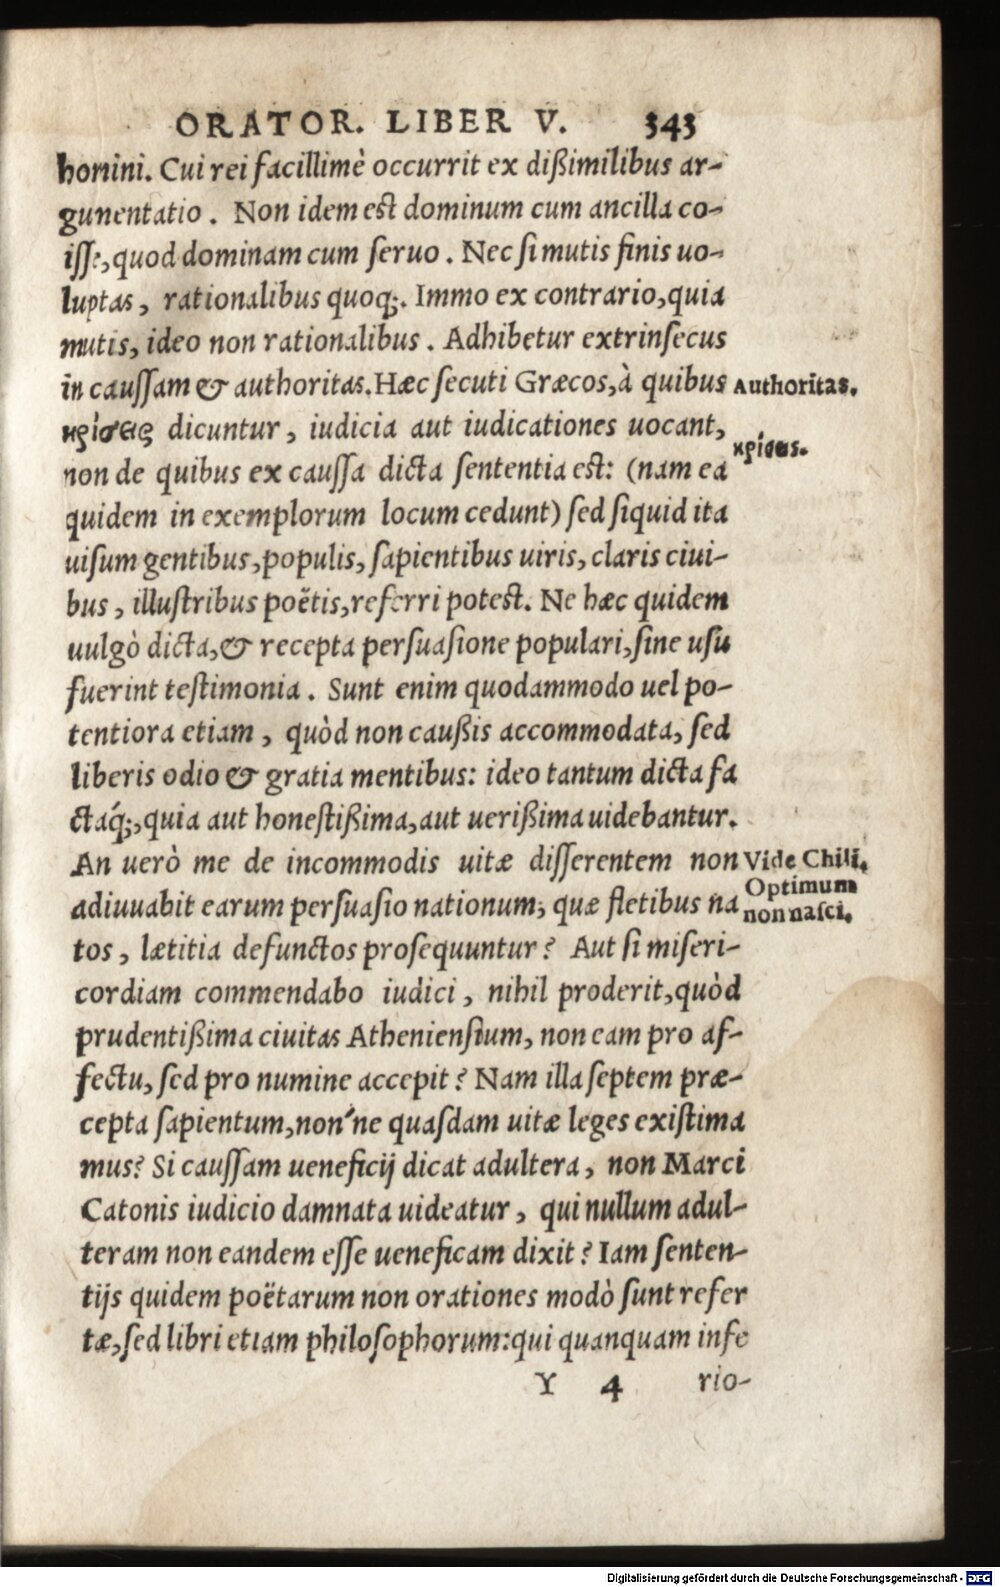 ORATOR. LIBER V. 343
homini. Cui rei facillimè occurrit ex dißimilibus ar-
gumentatio. Non idem est dominum cum ancilla co-
isse, quod dominam cum seruo. Nec si mutis finis uo-
luptas, rationalibus quoq;. Immo ex contrario, quia
mutis, ideo non rationalibus. Adhibetur extrinsecus
in caussam & authoritas. Hæc secuti Græcos, à quibus
Authoritas.
κρίσεις dicuntur, iudicia aut iudicationes uocant,
κρίσεις.
non de quibus ex caussa dicta sententia est: (nam ea
quidem in exemplorum locum cedunt) sed siquid ita
uisum gentibus, populis, sapientibus uiris, claris ciui-
bus, illustribus poëtis, referri potest. Ne hæc quidem
uulgò dicta, & recepta persuasione populari, sine usu
fuerint testimonia. Sunt enim quodammodo uel po-
tentiora etiam, quòd non caußis accommodata, sed
liberis odio & gratia mentibus: ideo tantum dicta fa
ctaq́;, quia aut honestißima, aut uerißima uidebantur.
An uerò me de incommodis uitæ disserentem non
Vide Chili.
Optimum
adiuuabit earum persuasio nationum, quæ fletibus na
non nasci.
tos, lætitia defunctos prosequuntur? Aut si miseri-
cordiam commendabo iudici, nihil proderit, quòd
prudentißima ciuitas Atheniensium, non eam pro af-
fectu, sed pro numine accepit? Nam illa septem præ-
cepta sapientum, non'ne quasdam uitæ leges existima
mus? Si caussam ueneficij dicat adultera, non Marci
Catonis iudicio damnata uideatur, qui nullum adul-
teram non eandem esse ueneficam dixit? Iam senten-
tijs quidem poëtarum non orationes modò sunt refer
tæ, sed libri etiam philosophorum: qui quanquam infe
Y 4 rio-
Digitalisierung gefördert durch die Deutsche Forschungsgemeinschaft - DFG